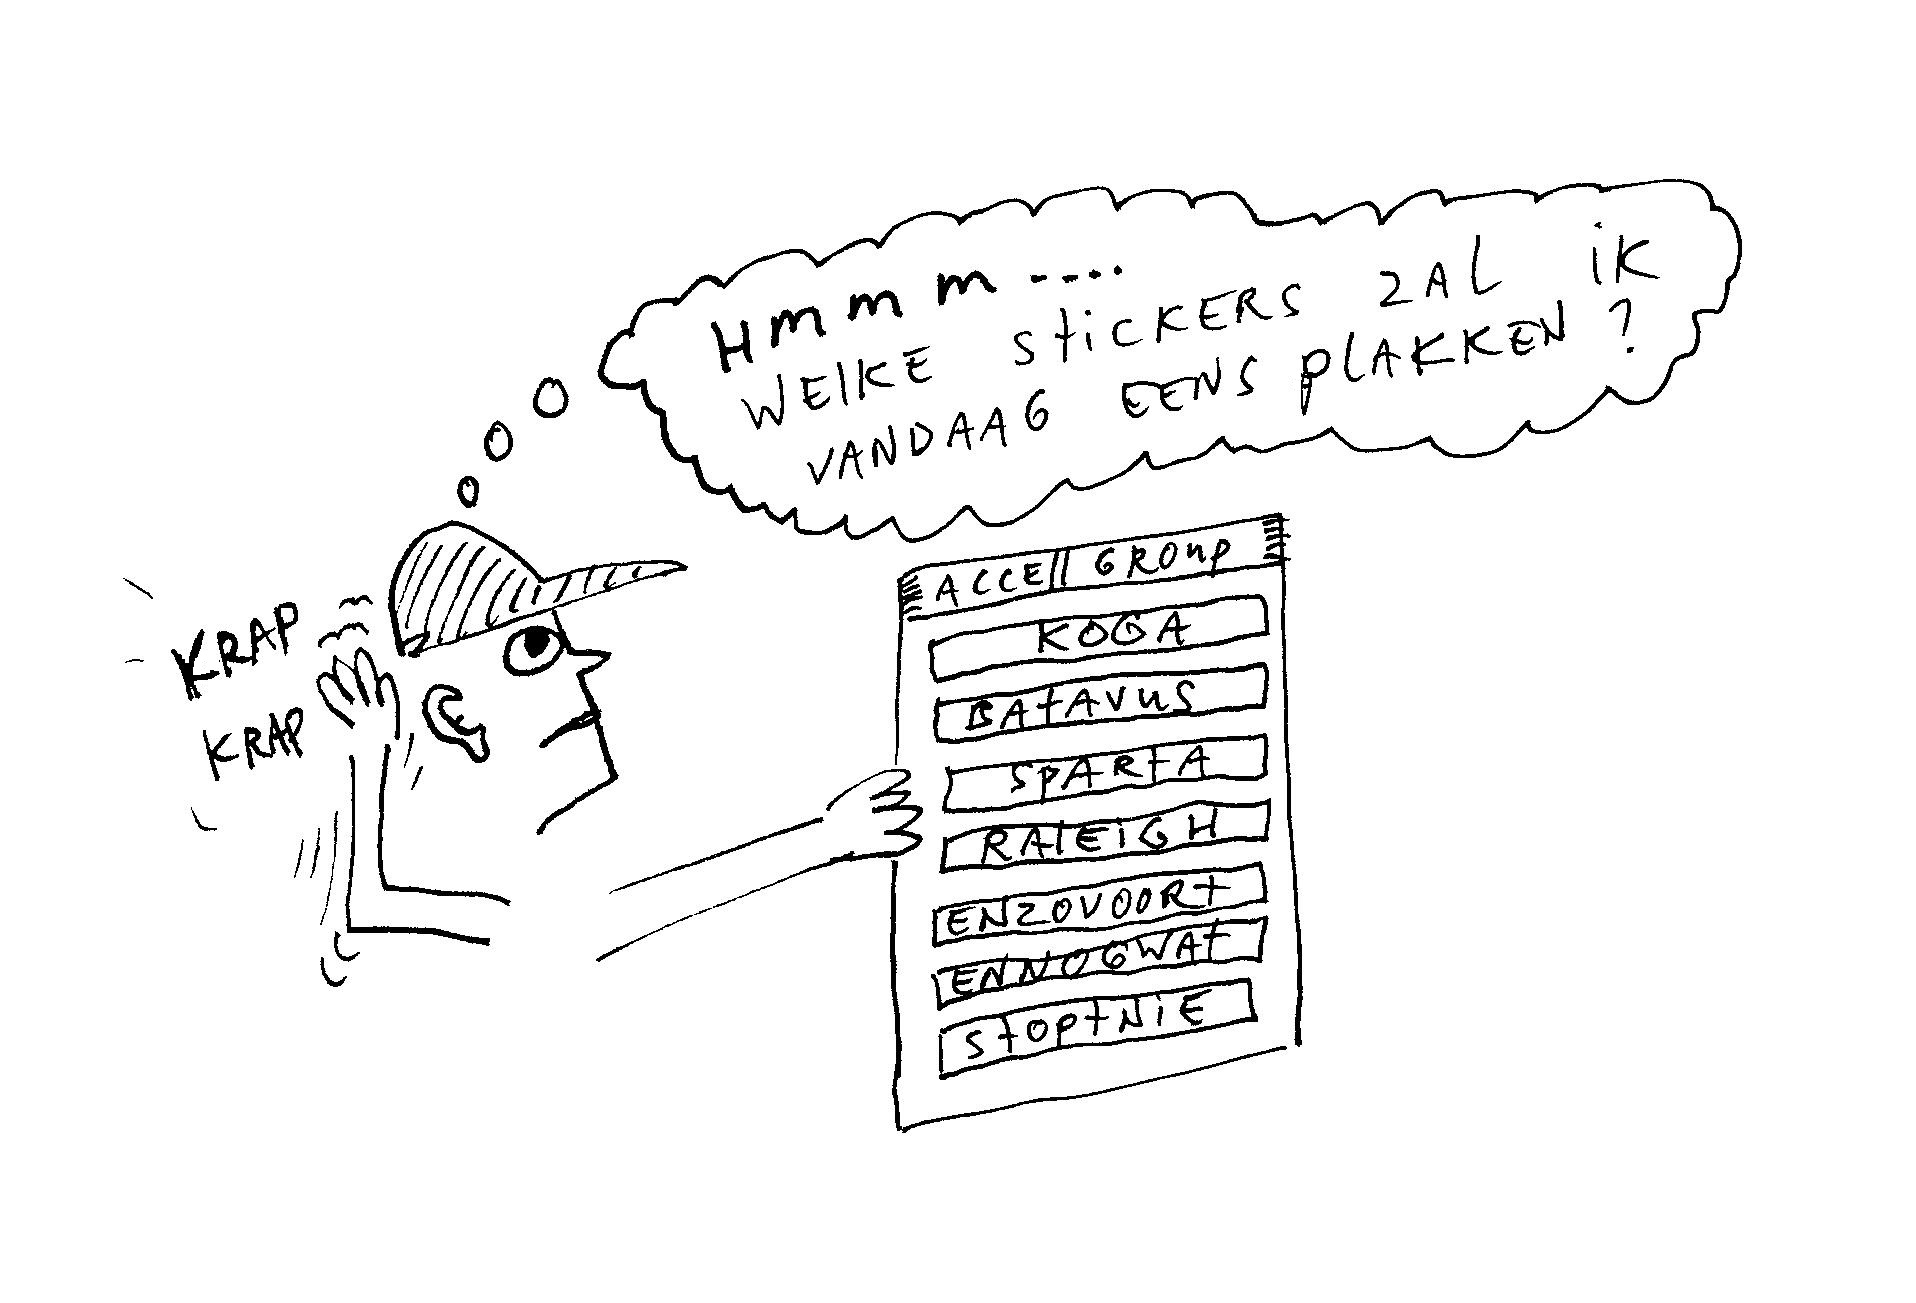 Hmmm....
WELKE STICKERS ZAL IK
VANDAAG EENS PLAKKEN?
KRAP
KRAP
ACCELL GROUP
KOGA
BATAVUS
SPARTA
RALEIGH
ENZOVOORT
ENNOGWAT
STOPTNIE